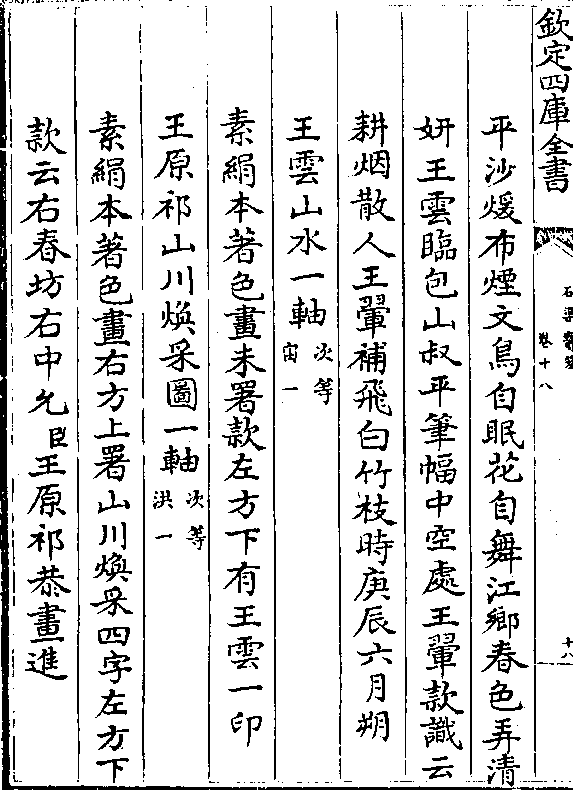 欽定四庫全書
石渠寶笈
卷十八
十八
平沙煖布煙文鳥自眠花自舞江鄉春色弄清
妍王雲臨包山叔平筆幅中空處王翬款識云
耕烟散人王翬補飛白竹枝時庚辰六月朔
王雲山水一軸次等宙一
素絹本著色畫未署款左方下有王雲一印
王原祁山川煥采圖一軸次等洪一
素絹本著色畫右方上署山川煥采四字左方下
款云右春坊右中允臣王原祁恭畫進